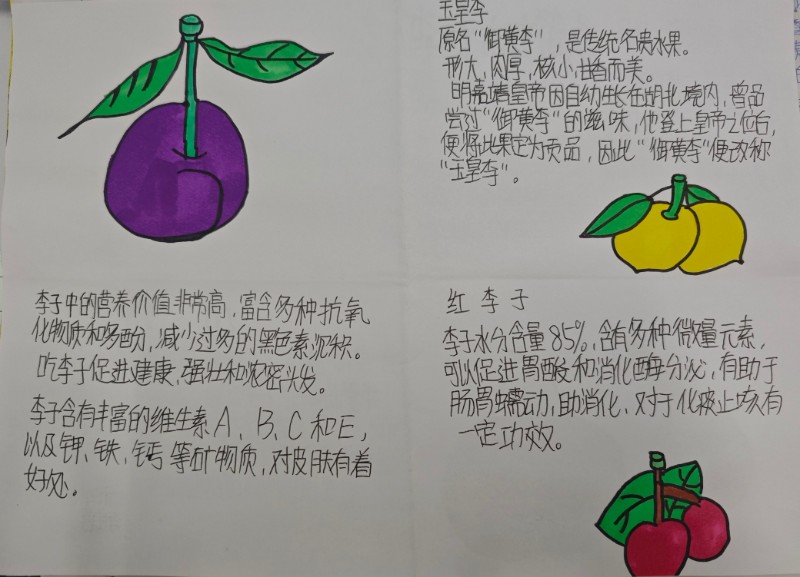 玉皇李
原名“御黄李”,是传统名贵水果。
形大,肉厚,核小,甘香而美。
明嘉靖皇帝因自幼生长在胡北境内,曾品
尝过“御黄李”的滋味,他登上皇帝之位后,
便将此果定为贡品,因此“御黄李”便改称
“玉皇李”。
李子中的营养价值非常高,富含多种抗氧
化物质和多酚,减少过多的黑色素沉积。
吃李子促进健康,强壮和浓密头发。
李子含有丰富的维生素A、B、C和E,
以及钾、铁、钙等矿物质,对皮肤有着
好处。
红李子
李子水分含量85%,含有多种微量元素,
可以促进胃酸和消化酶分泌,有助于
肠胃蠕动,助消化,对于化痰止咳有
一定功效。